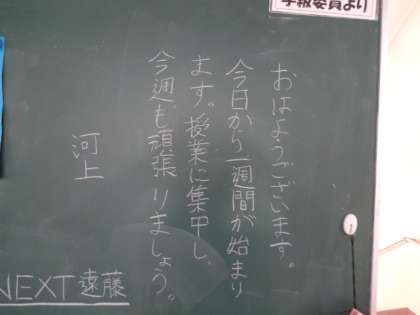 学級委員より
おはようございます。
今日から一週間が始まり
ます。授業に集中し、
今週も頑張りましょう。
河上
NEXT 遠藤